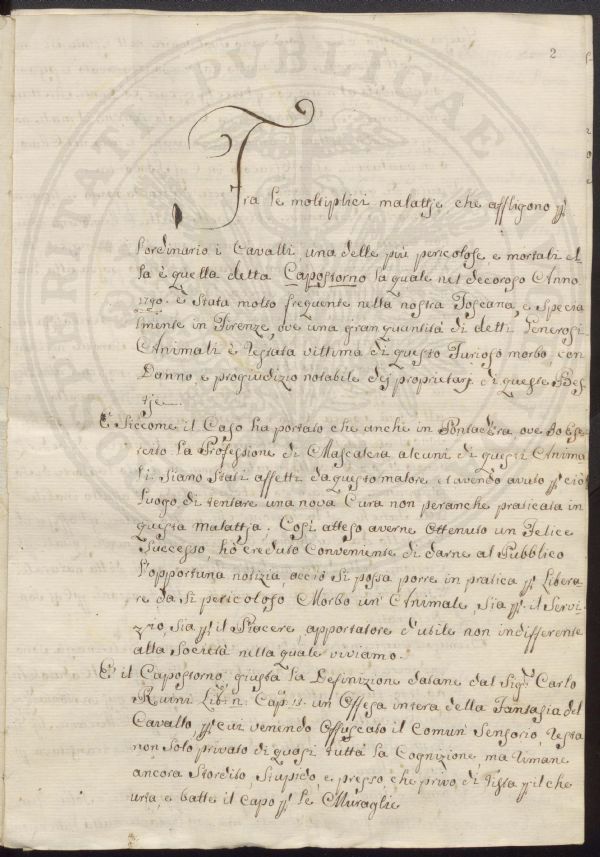 2
Fra le moltiplici malattje che affligono p
l'ordinario i Cavalli, una delle più pericolose e mortali el
la è quella detta Capostorno la quale nel decoroso Anno
1790. è Stata molto frequente nella nostra Toscana, e Specia
lmente in Firenze, ove una gran quantità di detti Generosi
Animali è restata vittima di questo Furioso morbo, con
Danno, e progiudizio notabile dej proprietarj di queste Bes
tje.
E Siccome il Caso ha portato che anche in Pontadera, ove Io Ese
rcito la Professione di Mascalcia alcuni di questi Anima
li Siano Stati affetti da questo malore et avendo avuto p ciò
Luogo di tentare una nova Cura non peranche praticata in
questa malattja. Così atteso averne Ottenuto un Felice
Successo, hò creduto Conveniente di darne al Pubblico
l'opportuna notizia acciò Si possa porre in pratica p Libera
re da Si pericoloso Morbo un' Animale, Sia p il Servi
zio, Sia p il Piacere, apportatore d'utile non indifferente
alla Società nella quale viviamo.
E il Capostorno giusta la Definizione datane dal Sig Carlo
Ruini Lib: Cap: 15. un Offesa intera della Fantasia del
Cavallo, p cui venendo Offuscato il Comun' Sensorio, resta
non Solo privato di quasi tutta la Cognizione, ma rimane
ancora Stordito, Stupido, e presso, che privo di Vista p il che
urta, e batte il Capo p le Muraglie